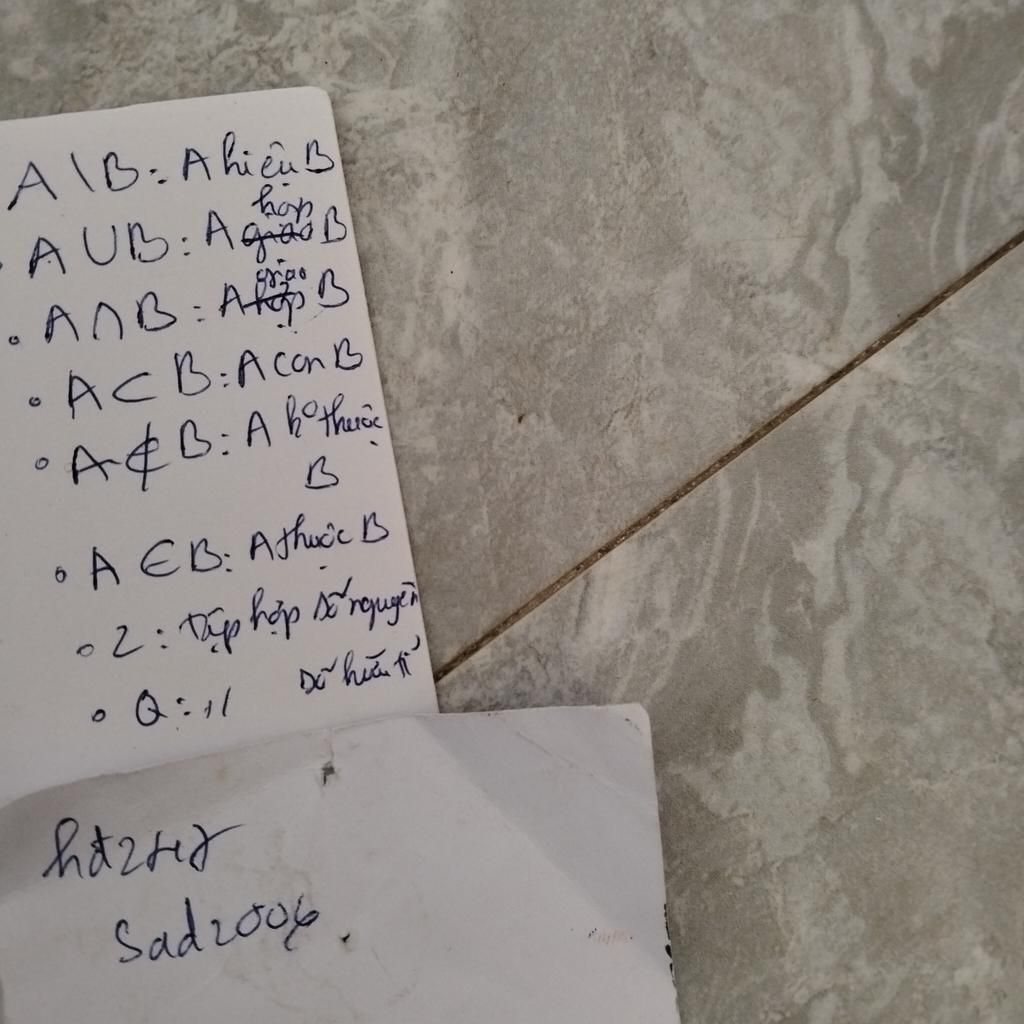 A \ B : A hiệu B
hợp
A ∪ B : A giao B
giao
• A ∩ B : A hợp B
• A ⊂ B : A con B
• A ⊄ B : A ko thuộc
B
• A ∈ B : A thuộc B
• Z : Tập hợp số nguyên
• Q : ,, số hữu tỉ
Sad2006